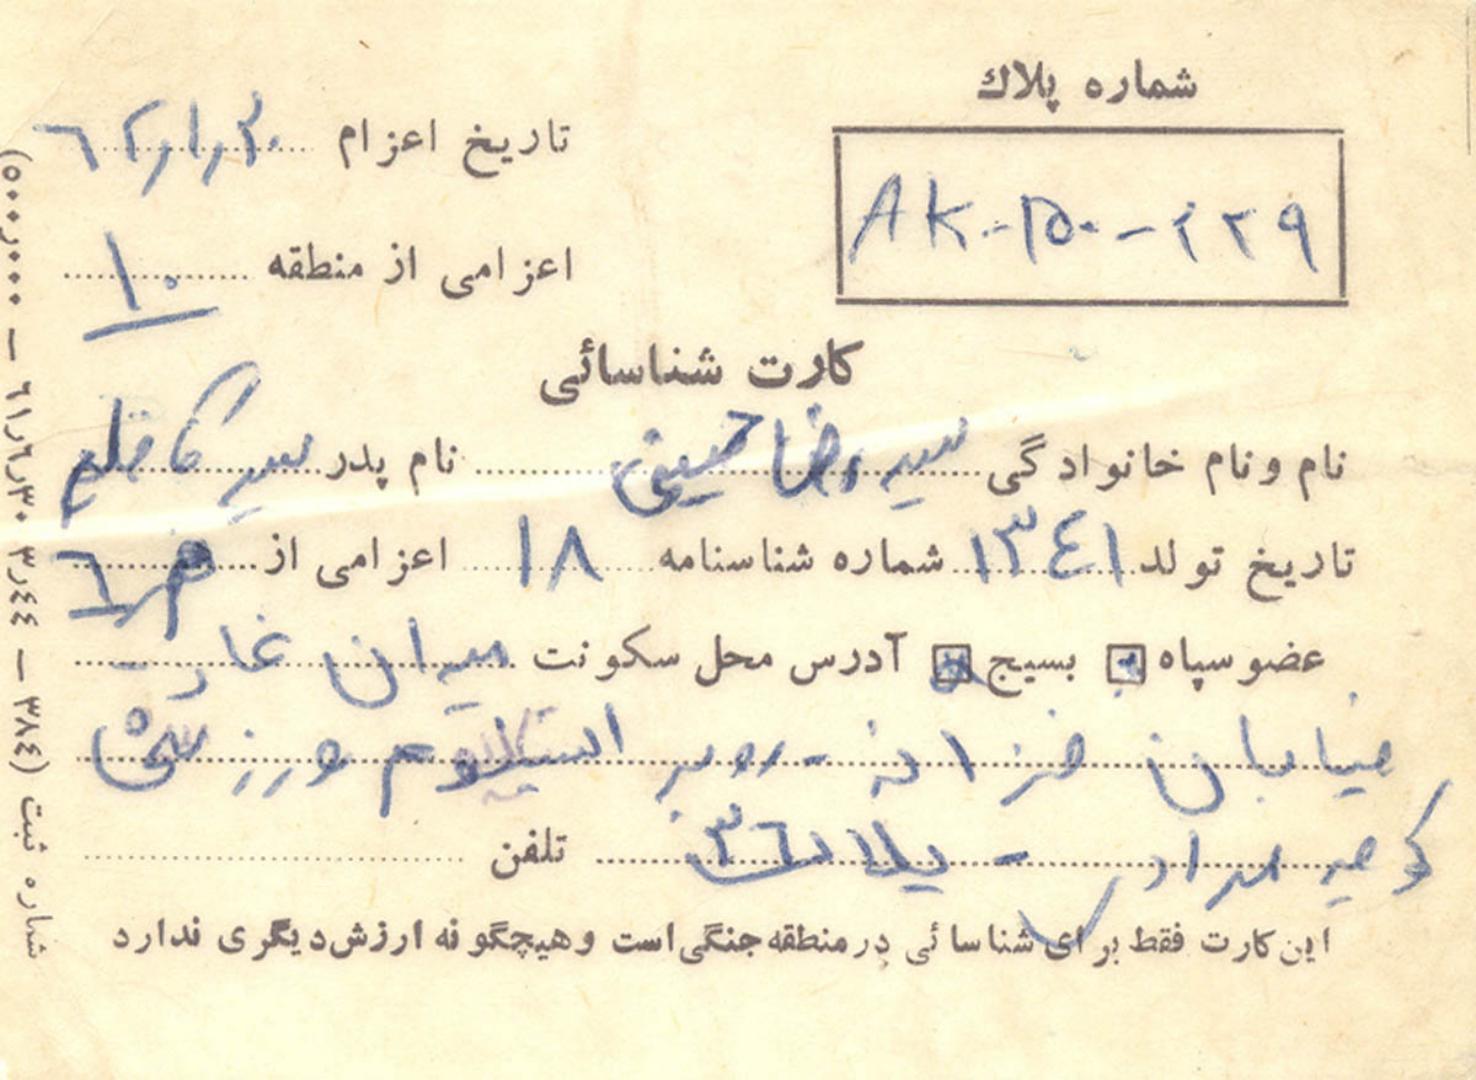 شماره پلاك
AK-۱۵۰-۲۲۹
تاریخ اعزام ۶۲/۱/۲۰
اعزامی از منطقه ۱۰
کارت شناسائی
نام و نام خانوادگی سید رضا حسینی نام پدر سید کاظم
تاریخ تولد ۱۳٤۱ شماره شناسنامه ۱۸ اعزامی از
عضو سپاه بسیج آدرس محل سکونت میدان غار -
خیابان خزانه - روبر استادیوم ورزشی
کوچه مرادی - پلاك ۳٦ تلفن
این کارت فقط برای شناسائی در منطقه جنگی است و هیچگونه ارزش دیگری ندارد
شماره ثبت (۳۸٤ — ۳ر٤٤ ۳۰ر٦ر٦۱ — ۵۰۰ر۰۰۰)